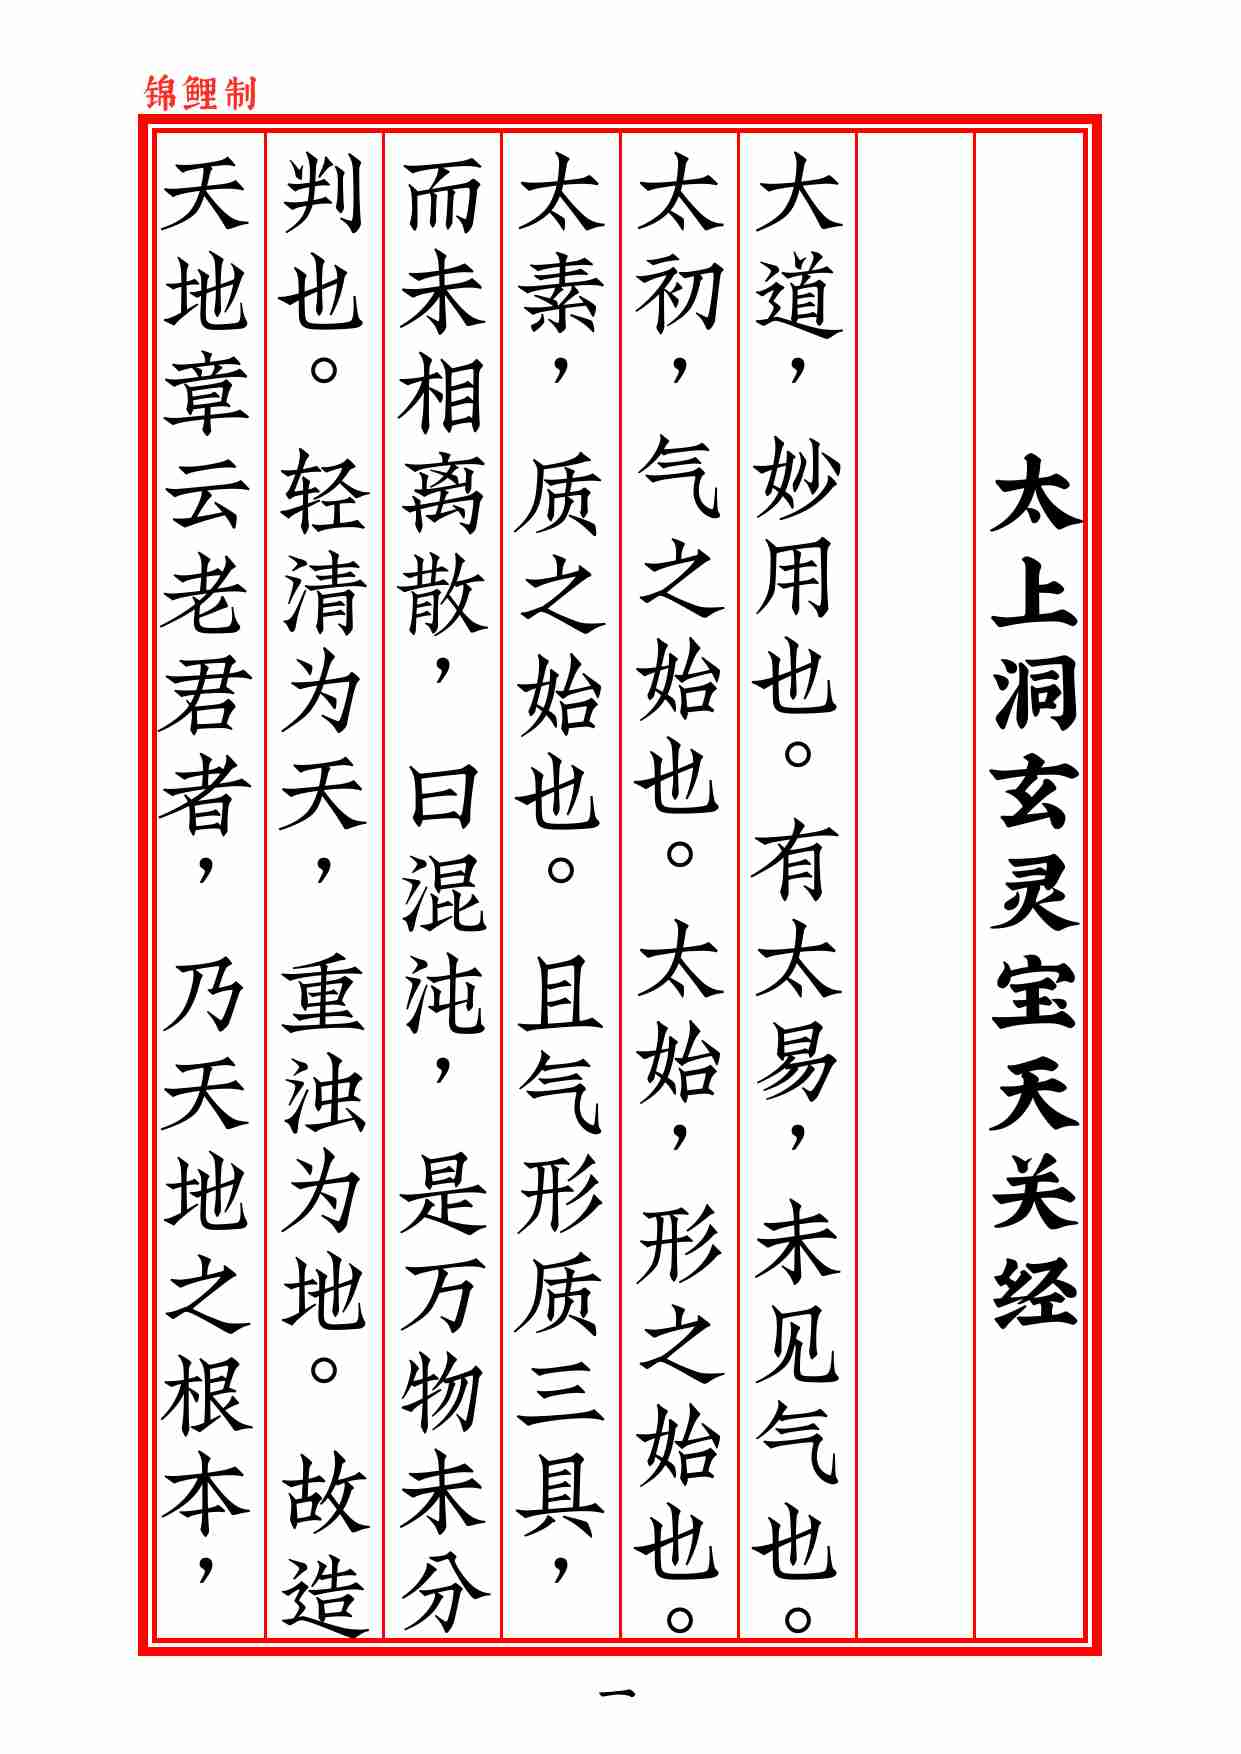 锦鲤制
太上洞玄灵宝天关经
大道，妙用也。有太易，未见气也。
太初，气之始也。太始，形之始也。
太素，质之始也。且气形质三具，
而未相离散，曰混沌，是万物未分
判也。轻清为天，重浊为地。故造
天地章云老君者，乃天地之根本，
一